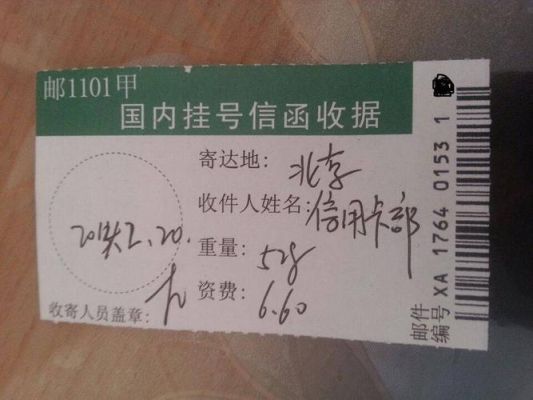 邮1101甲
国内挂号信函收据
寄达地: 北京
收件人姓名: 信用卡部
重量: 52g
资费: 6.60
收寄人员盖章:
邮件
编号 XA 1764 0153 1